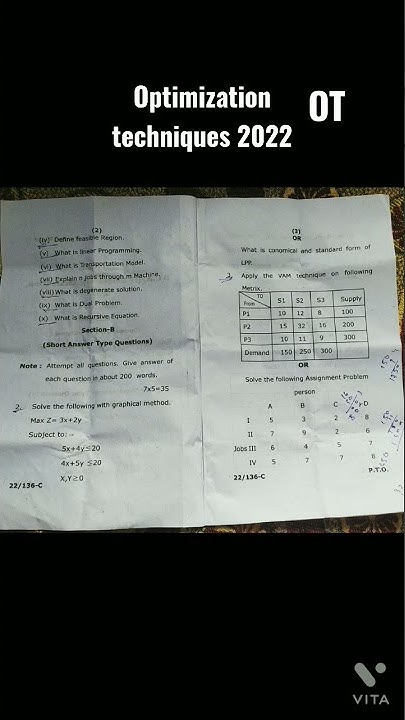 Optimization OT
techniques 2022
(2)
(iv) Define feasible Region.
(v) What is linear Programming.
(vi) What is Transportation Model.
(vii) Explain n jobs through m Machine.
(viii) What is degenerate solution.
(ix) What is Dual Problem.
(x) What is Recursive Equation.
Section-B
(Short Answer Type Questions)
Note : Attempt all questions. Give answer of
each question in about 200 words.
7x5=35
2. Solve the following with graphical method.
Max Z= 3x+2y
Subject to: -
5x+4y≤20
4x+5y ≤20
X,Y≥0
22/136-C
(3)
OR
What is conomical and standard form of
LPP.
3. Apply the VAM technique on following
Metrix.
TO
From S1 S2 S3 Supply
P1 10 12 8 100
P2 15 32 16 200
P3 10 11 9 300
Demand 150 250 300
OR
Solve the following Assignment Problem
person
A B C D
I 5 3 2 8
II 7 9 2 6
Jobs III 6 4 5 7
IV 5 7 7 8
P.T.O.
22/136-C
VITA